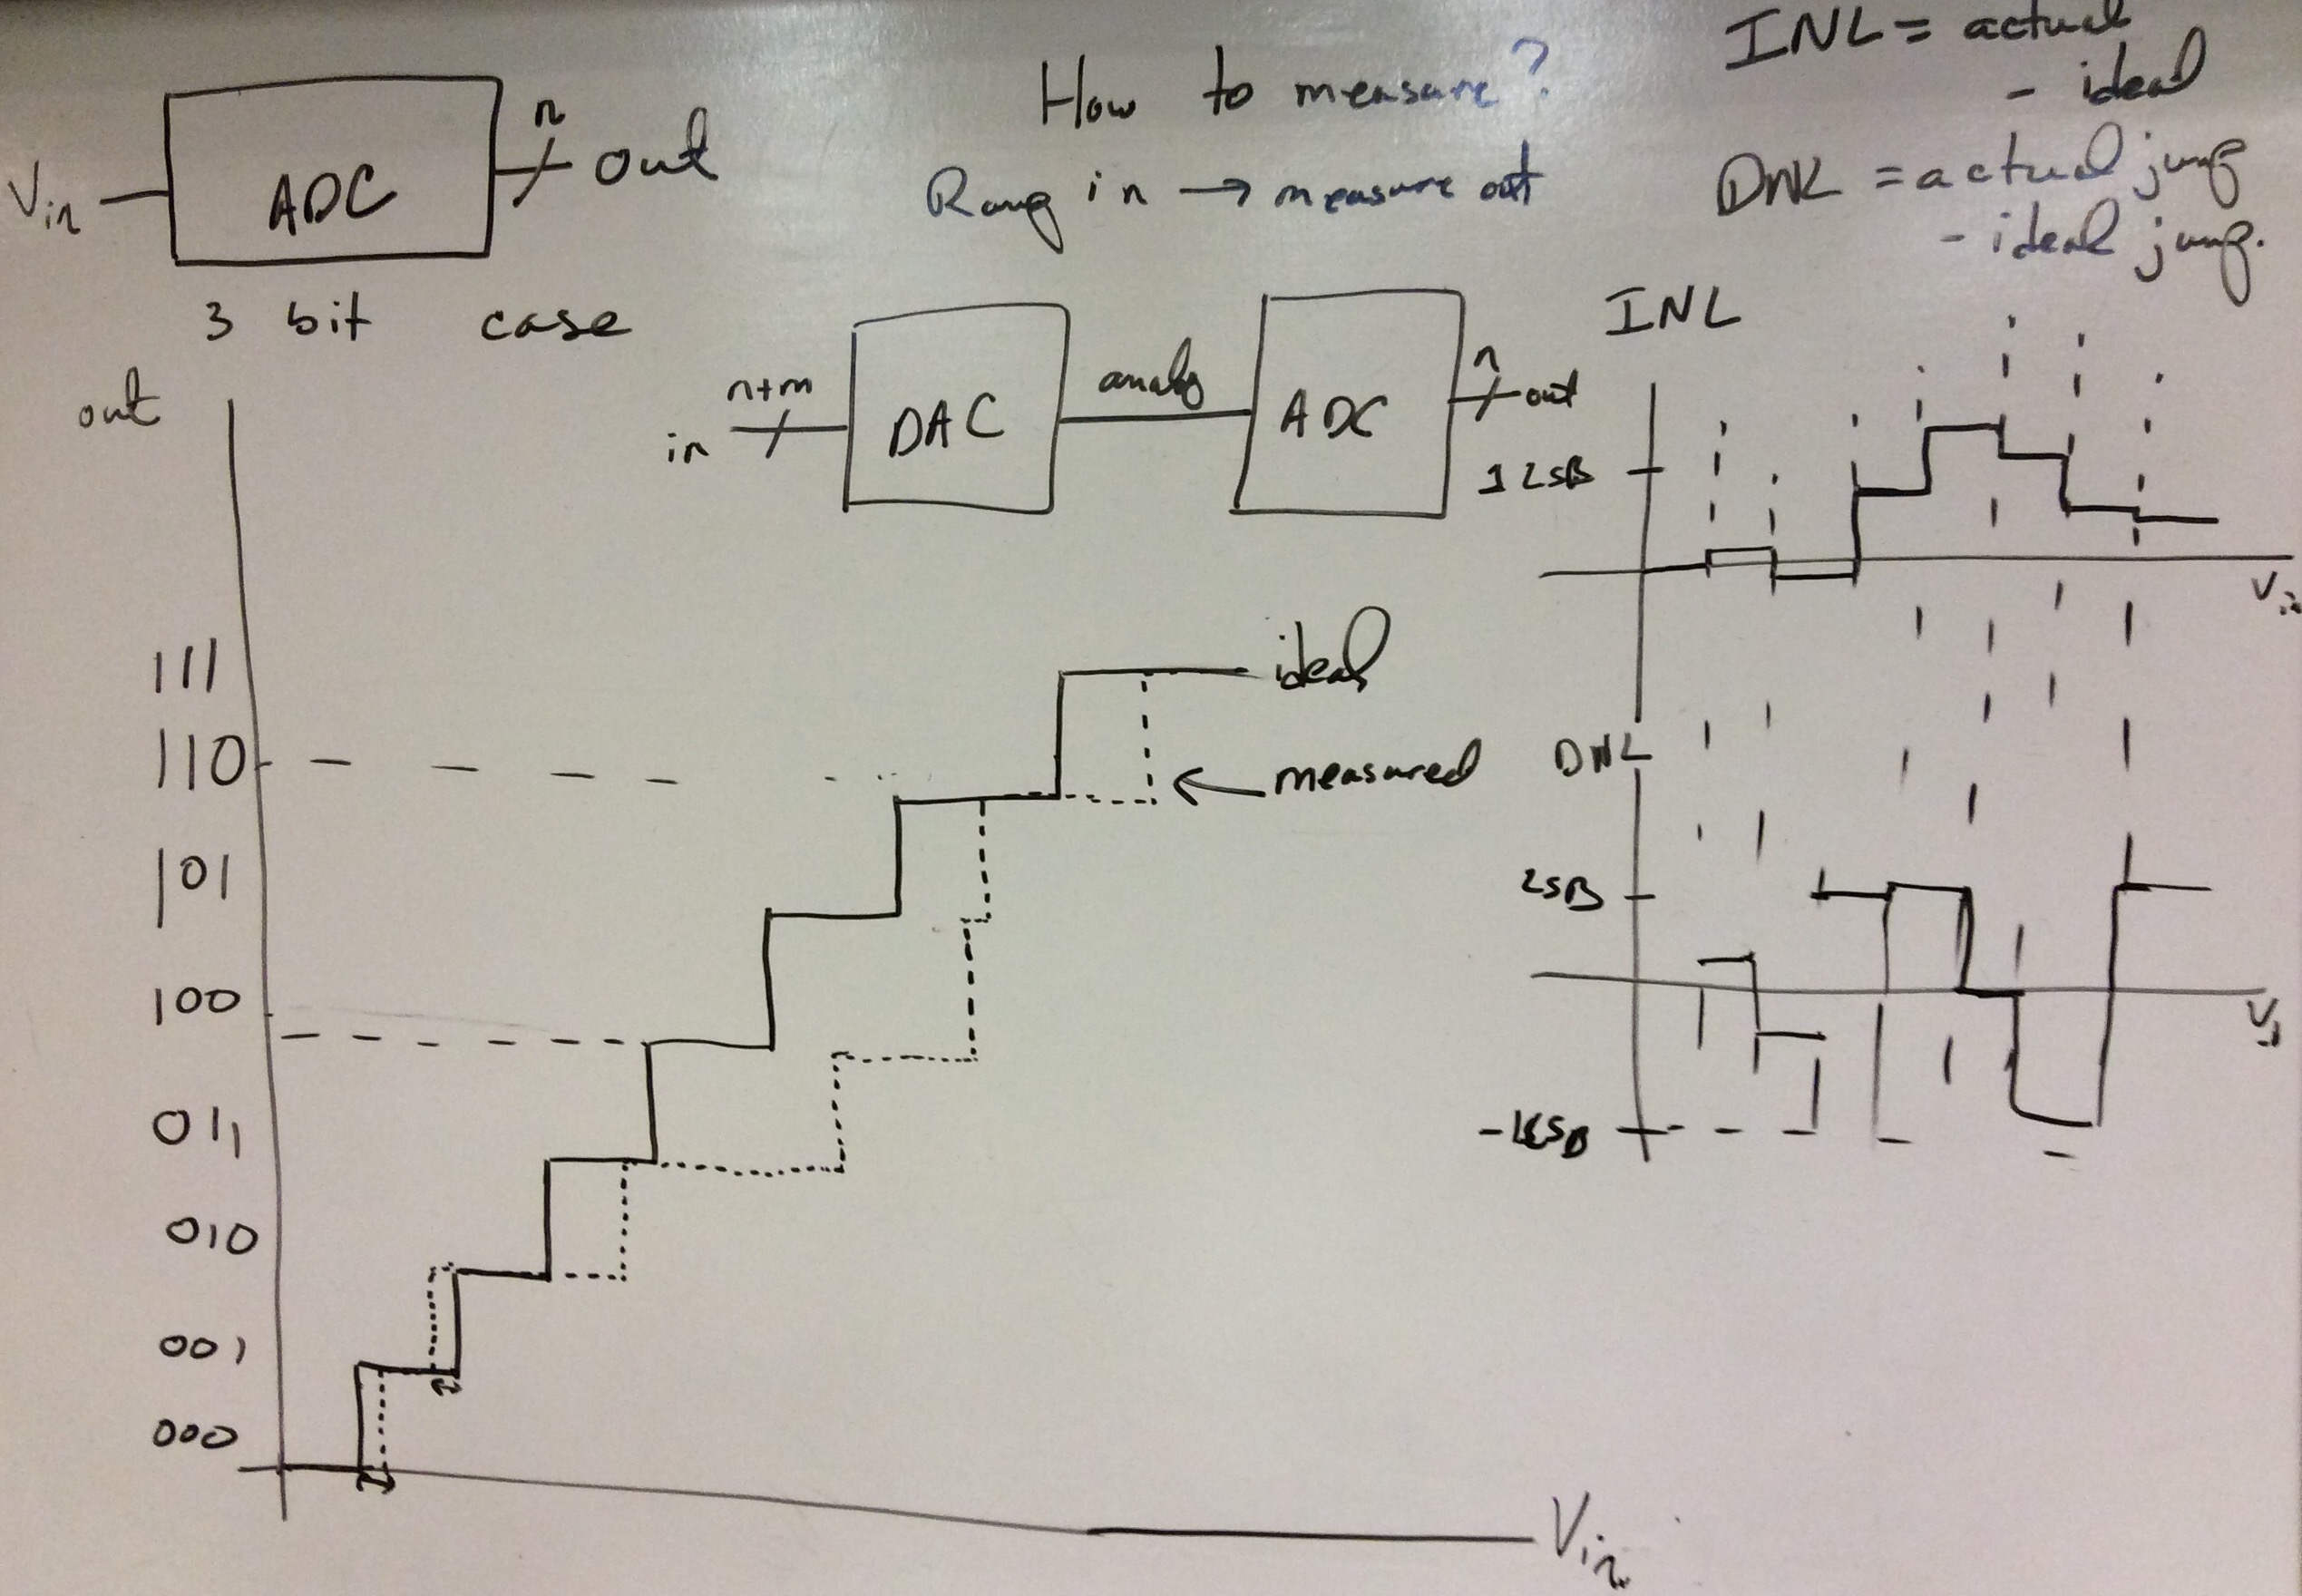 INL = actual
- ideal
How to measure?
DNL = actual jump
- ideal jump.
Ramp in → measure out
Vin
ADC
n
out
3 bit case
n+m
in
DAC
analog
ADC
n
out
out
111
110
101
100
011
010
001
000
ideal
measured
Vin
INL
1 LSB
Vin
DNL
LSB